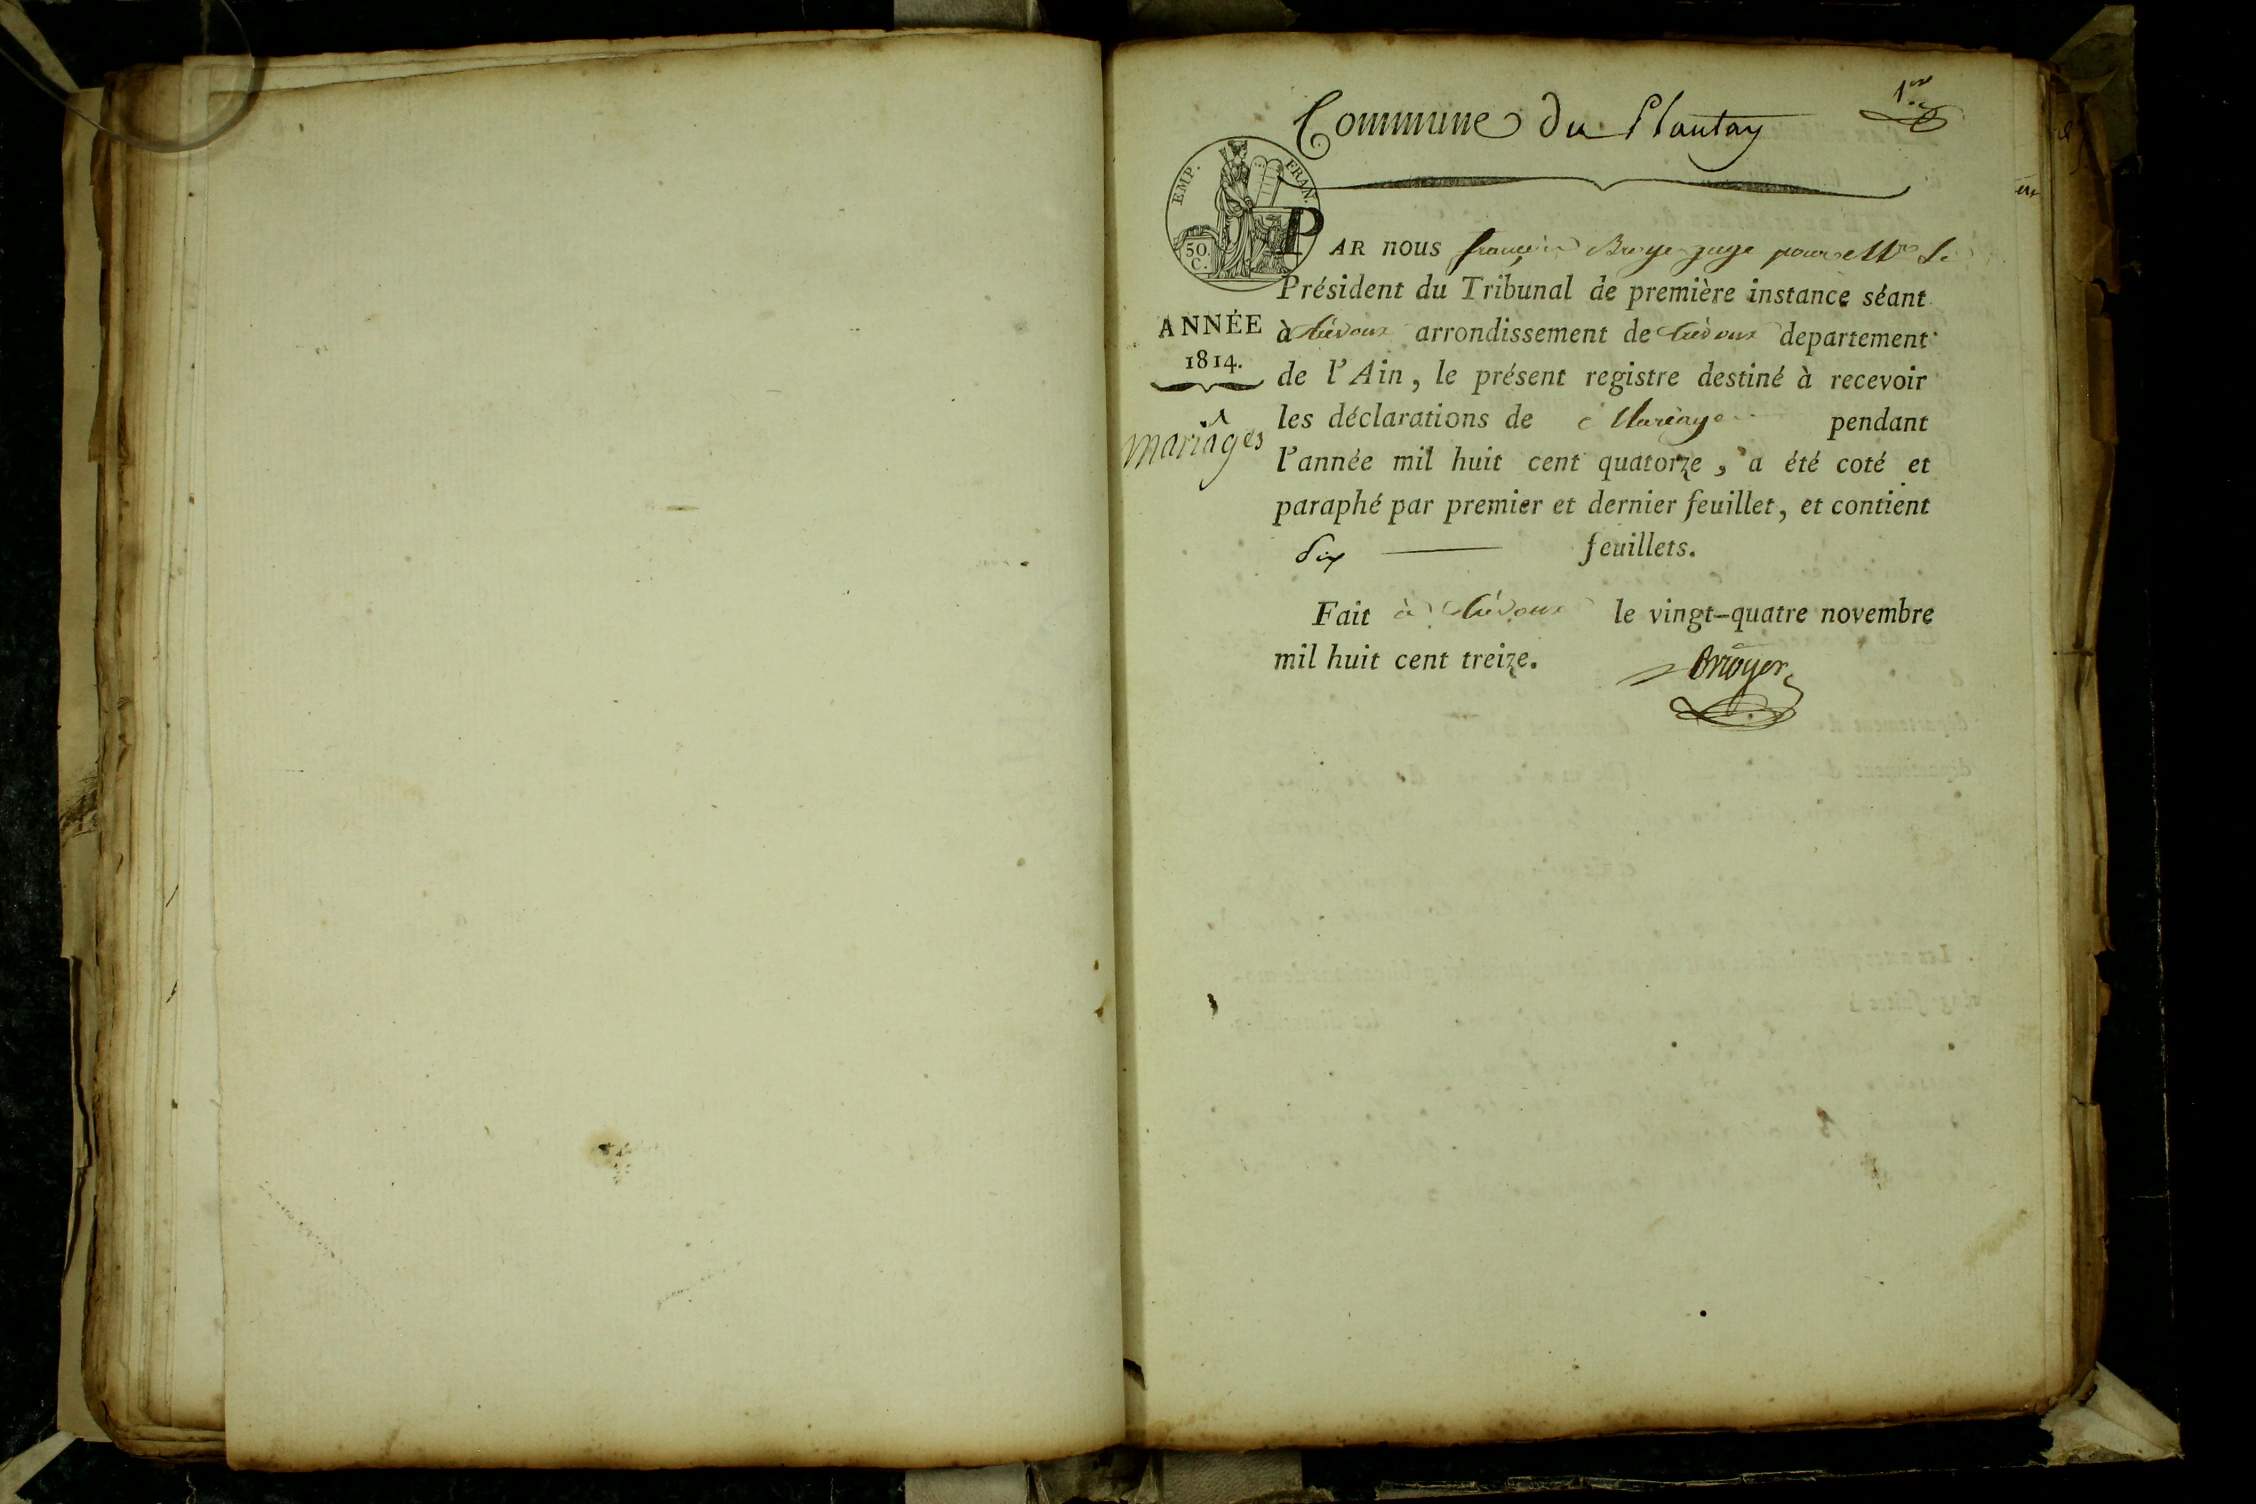 1er
Commune du Plantay
EMP. FRAN.
50.
C.
PAR nous françois juge pour Mr le
Président du Tribunal de première instance séant
à trévoux arrondissement de trévoux departement
de l'Ain, le présent registre destiné à recevoir
les déclarations de Mariage pendant
l'année mil huit cent quatorze, a été coté et
paraphé par premier et dernier feuillet, et contient
Six feuillets.
Fait à trévoux le vingt-quatre novembre
mil huit cent treize.
ANNÉE
1814.
mariages